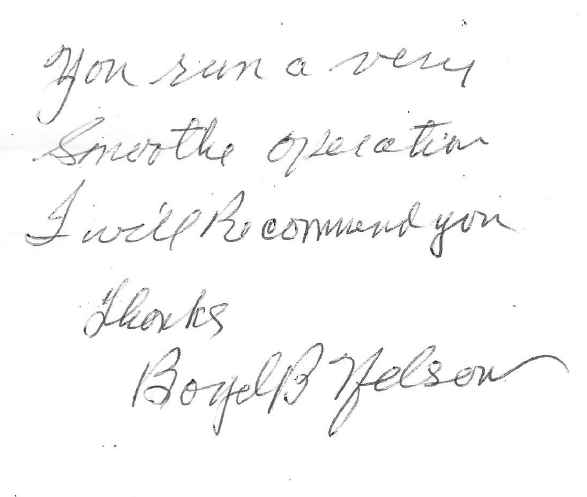 You run a very
Smoothe operation
I will Recommend you
Thanks
Boyd B Nelson